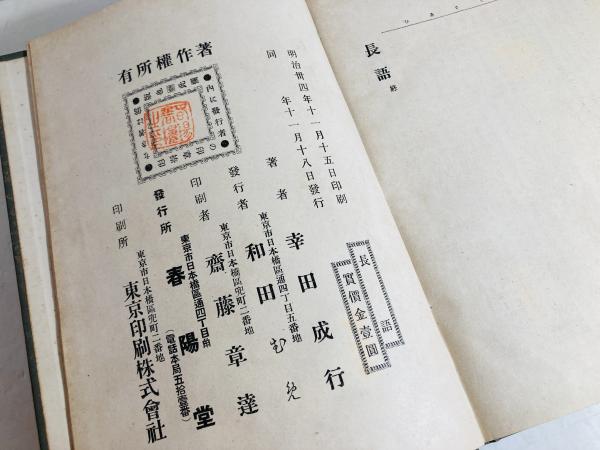 長語 終
長語
實價金壹圓
明治卅四年十一月十五日印刷
同 年十一月十八日發行
著者 幸田成行
東京市日本橋區通四丁目五番地
發行者 和田むめ
東京市日本橋區兜町二番地
印刷者 齋藤章達
東京市日本橋區通四丁目
發行所 春陽堂
(電話本局五拾壹番)
東京市日本橋區兜町二番地
印刷所 東京印刷株式會社
著作權所有